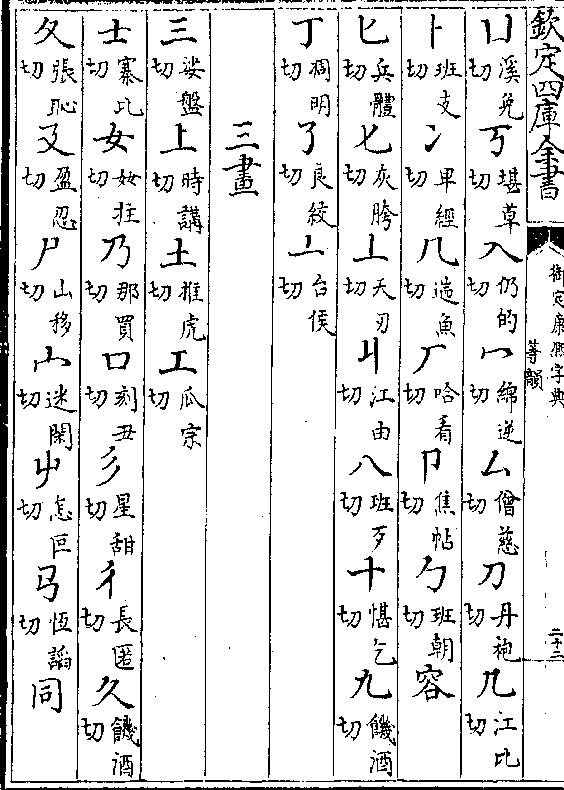 欽定四庫全書
御定康熙字典
等韻
二十二
凵溪免切丂堪草切入仍的切冖綿逆切厶僧慈切刀丹袍切几江比切
卜班支切冫卑經切𠘧造魚切厂哈看切卩焦帖切勹班朝切容
匕兵體切七灰胯切丄天刃切丩江由切八班歹切十切九饑酒切
丁切了良絞切亠台侯切
三畫
三娑盤切上時講切土推虎切工瓜宗切
士寨比切女切乃那買切口刻丑切彡星甜切彳長匿切久饑酒切
夂張恥切夊盈忍切尸山移切宀迷閑切屮怎叵切𢎘恆謟切同